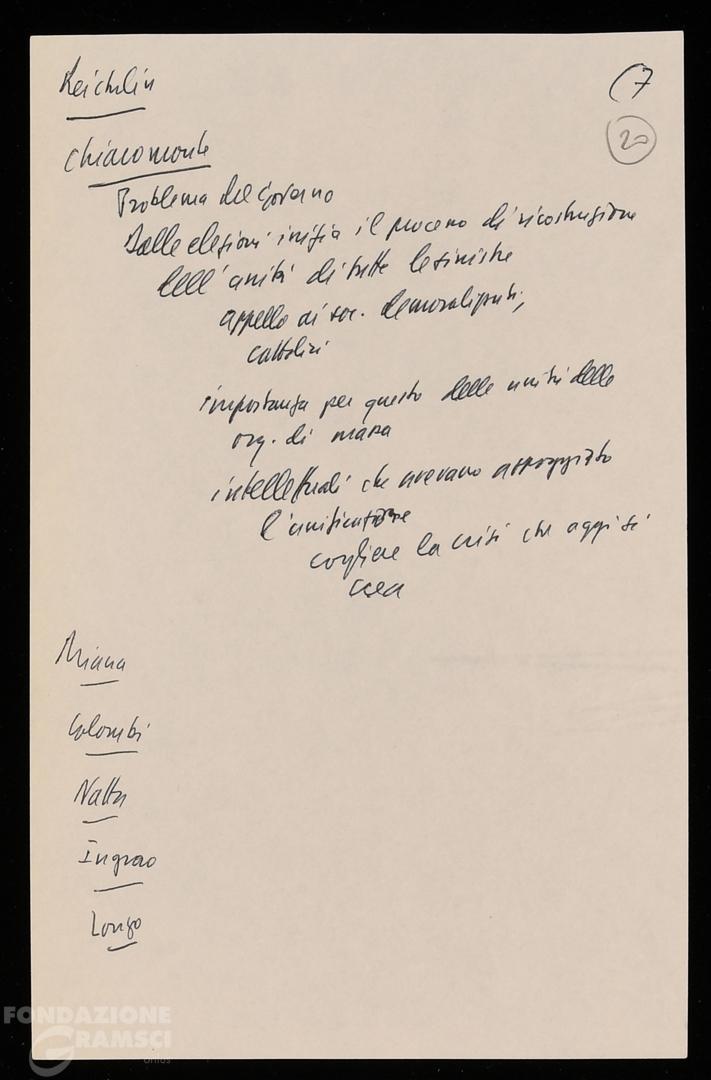 Reichlin
(7
20
Chiaromonte
Problema del Governo
Dalle elezioni inizia il processo di ricostruzione
dell'unità di tutte le sinistre
appello ai soc. demoralizzati,
cattolici
importanza per questo delle unità delle
org. di massa
intellettuali che avevano appoggiato
l'unificazione
cogliere la crisi che oggi si
crea
Miana
Colombi
Natta
Ingrao
Longo
FONDAZIONE
GRAMSCI
onlus